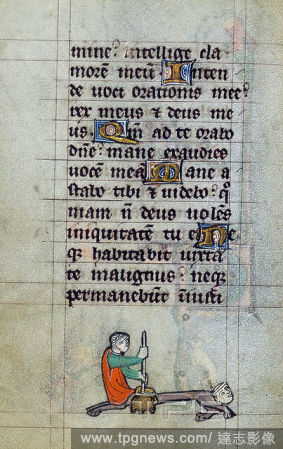 mine? intellige cla
morẽ meũ Inten
de voci orationis mee?
rex meus & deus me
us. Qm̃ ad te orabo
dñe? mane exaudies
vocẽ meã Mane a
stabo tibi & videbo? qm̃
niam ñ deus volẽs
iniquitatẽ tu es Ne
q̃ habitabit iuxta
te malignus? neq̃
permanebũt iniusti
www.tpgnews.com/ 達志影像